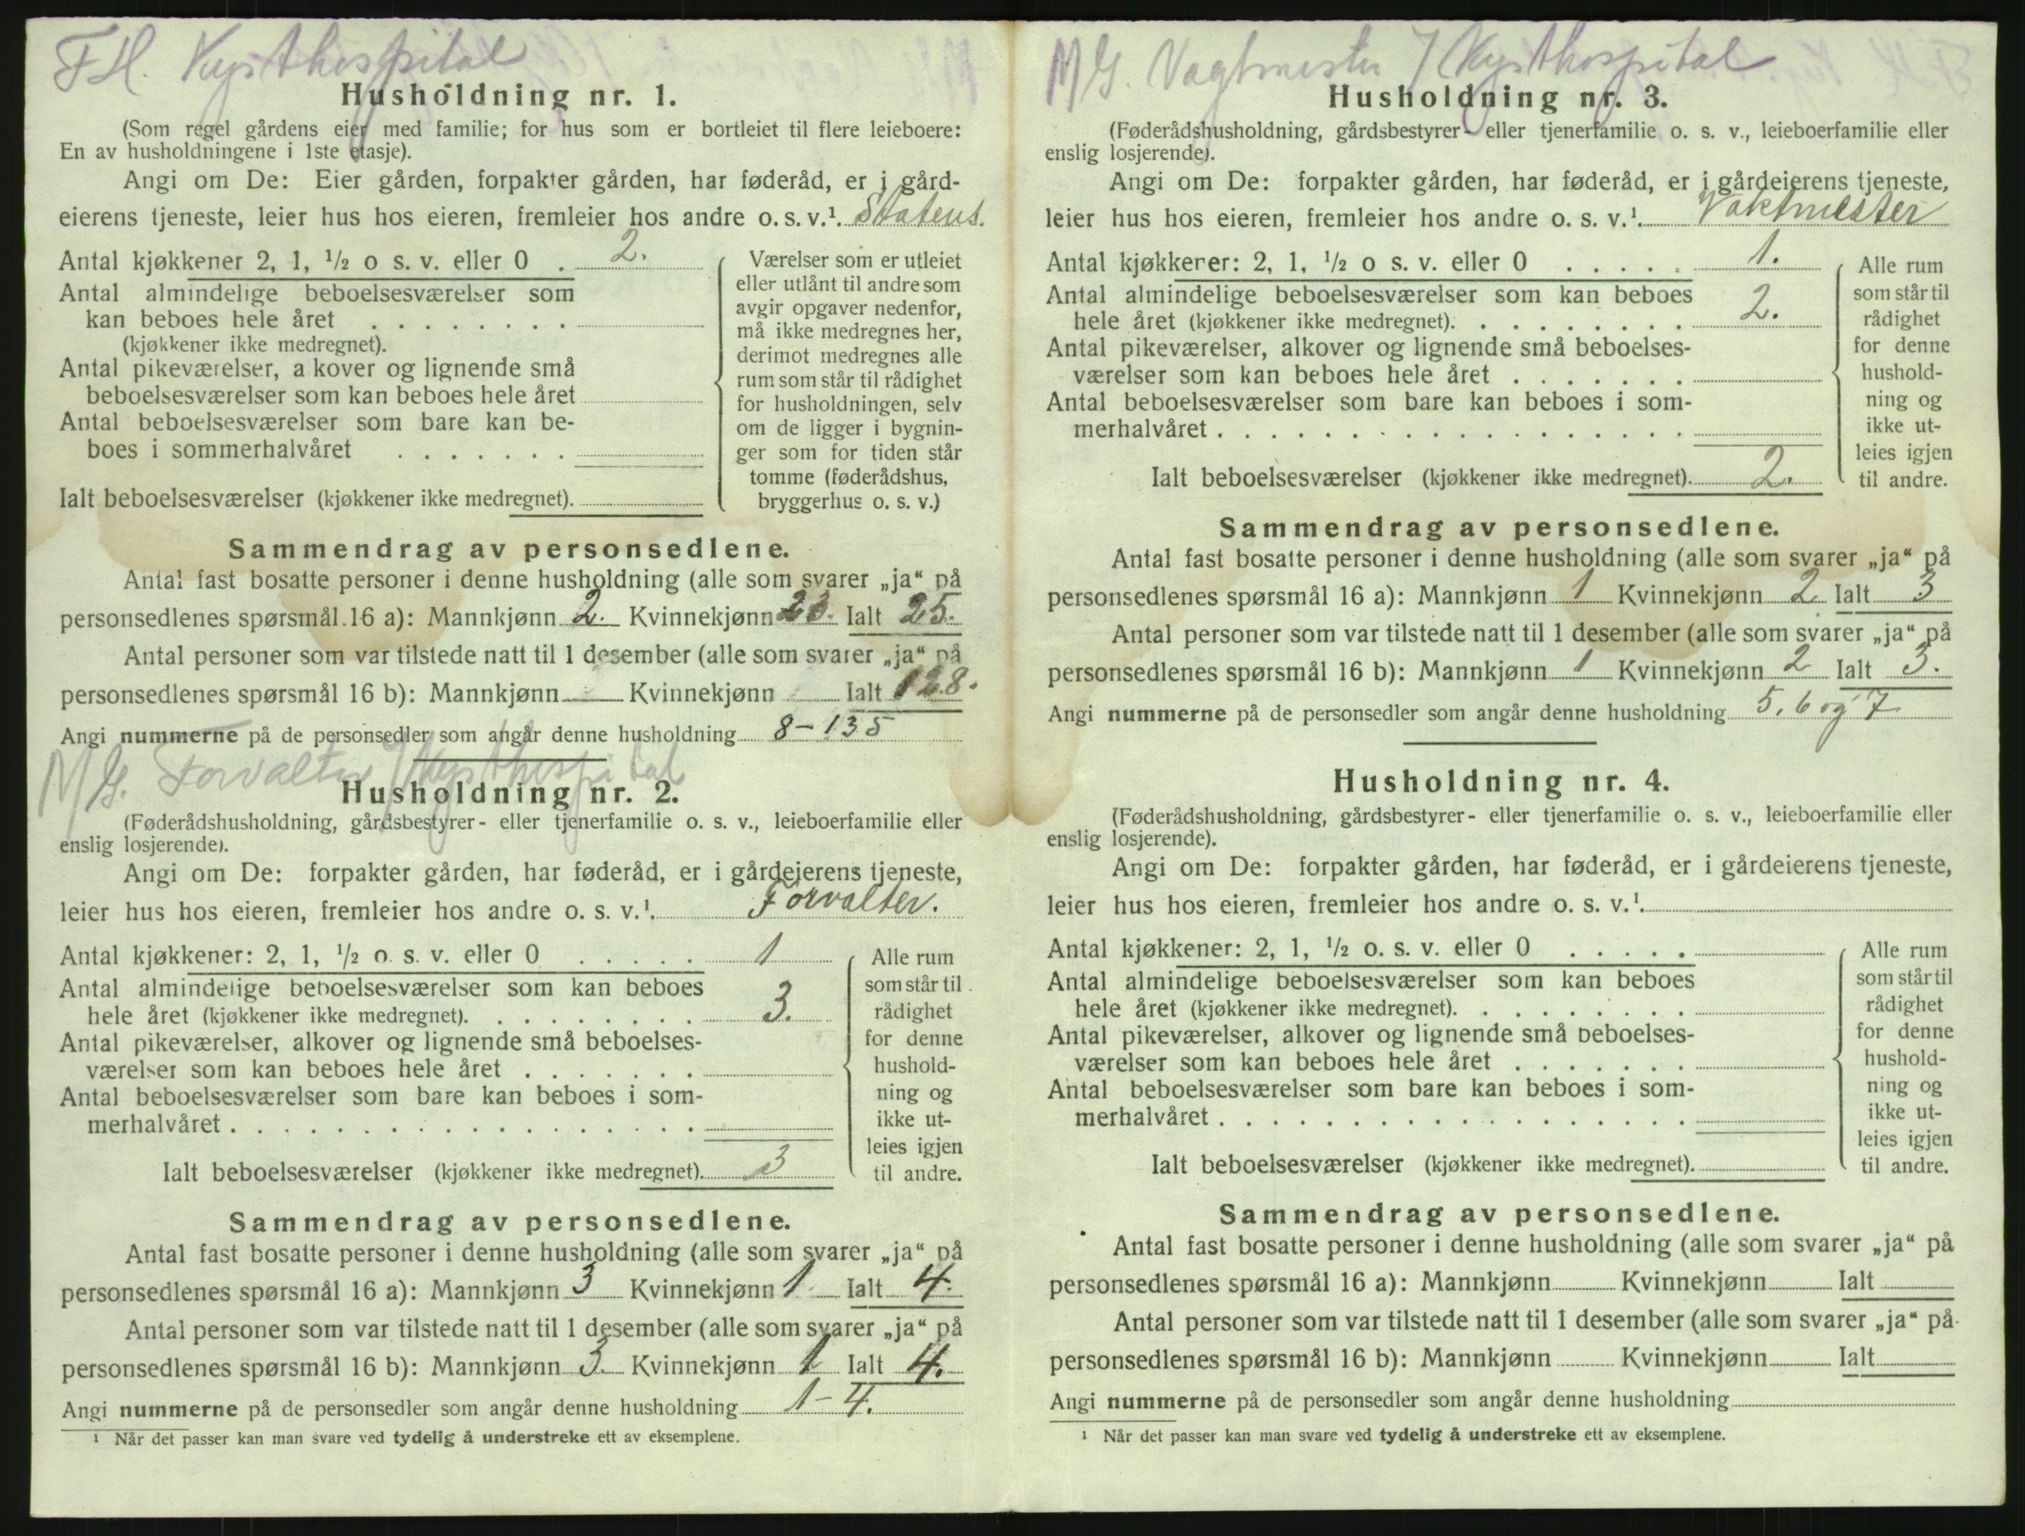 FH. Kysthospital
Husholdning nr. 1.
(Som regel gårdens eier med familie; for hus som er bortleiet til flere leieboere:
En av husholdningene i 1ste etasje).
Angi om De: Eier gården, forpakter gården, har føderåd, er i gård-
eierens tjeneste, leier hus hos eieren, fremleier hos andre o. s. v.¹. Statens.
Antal kjøkkener 2, 1, ½ o s. v. eller 0 . 2.
Antal almindelige beboelsesværelser som
kan beboes hele året . . . . . . . .
(kjøkkener ikke medregnet).
Antal pikeværelser, a kover og lignende små
beboelsesværelser som kan beboes hele året
Antal beboelsesværelser som bare kan be-
boes i sommerhalvåret . . . . . . .
Ialt beboelsesværelser (kjøkkener ikke medregnet).
Værelser som er utleiet
eller utlånt til andre som
avgir opgaver nedenfor,
må ikke medregnes her,
derimot medregnes alle
rum som står til rådighet
for husholdningen, selv
om de ligger i bygnin-
ger som for tiden står
tomme (føderådshus,
bryggerhus o. s. v.)
Sammendrag av personsedlene.
Antal fast bosatte personer i denne husholdning (alle som svarer „ja“ på
personsedlenes spørsmål 16 a): Mannkjønn 2. Kvinnekjønn 23. Ialt 25.
Antal personer som var tilstede natt til 1 desember (alle som svarer „ja“ på
personsedlenes spørsmål 16 b): Mannkjønn Kvinnekjønn Ialt 128.
Angi nummerne på de personsedler som angår denne husholdning 8-135
M/G. Forvalter / Kysthospital
Husholdning nr. 2.
(Føderådshusholdning, gårdsbestyrer- eller tjenerfamilie o. s. v., leieboerfamilie eller
enslig losjerende).
Angi om De: forpakter gården, har føderåd, er i gårdeierens tjeneste,
leier hus hos eieren, fremleier hos andre o. s. v.¹. Forvalter.
Antal kjøkkener: 2, 1, ½ o. s. v. eller 0 . . . . . 1
Antal almindelige beboelsesværelser som kan beboes
hele året (kjøkkener ikke medregnet). . . . . . . . . 3.
Antal pikeværelser, alkover og lignende små beboelses-
værelser som kan beboes hele året . . . . . . .
Antal beboelsesværelser som bare kan beboes i som-
merhalvåret . . . . . . . . . . . . . . . . . .
Ialt beboelsesværelser (kjøkkener ikke medregnet). 3
Alle rum
som står til
rådighet
for denne
hushold-
ning og
ikke ut-
leies igjen
til andre.
Sammendrag av personsedlene.
Antal fast bosatte personer i denne husholdning (alle som svarer „ja“ på
personsedlenes spørsmål 16 a): Mannkjønn 3 Kvinnekjønn 1 Ialt 4.
Antal personer som var tilstede natt til 1 desember (alle som svarer „ja“ på
personsedlenes spørsmål 16 b): Mannkjønn 3. Kvinnekjønn 1 Ialt 4.
Angi nummerne på de personsedler som angår denne husholdning 1-4.
¹ Når det passer kan man svare ved tydelig å understreke ett av eksemplene.
M/G. Vagtmester / Kysthospital
Husholdning nr. 3.
(Føderådshusholdning, gårdsbestyrer- eller tjenerfamilie o. s. v., leieboerfamilie eller
enslig losjerende).
Angi om De: forpakter gården, har føderåd, er i gårdeierens tjeneste,
leier hus hos eieren, fremleier hos andre o. s. v.¹. Vaktmester
Antal kjøkkener: 2, 1, ½ o s. v. eller 0 . . . . . 1.
Antal almindelige beboelsesværelser som kan beboes
hele året (kjøkkener ikke medregnet). . . . . . . . . 2.
Antal pikeværelser, alkover og lignende små beboelses-
værelser som kan beboes hele året . . . . . . .
Antal beboelsesværelser som bare kan beboes i som-
merhalvåret . . . . . . . . . . . . . . . . . .
Ialt beboelsesværelser (kjøkkener ikke medregnet). 2.
Alle rum
som står til
rådighet
for denne
hushold-
ning og
ikke ut-
leies igjen
til andre.
Sammendrag av personsedlene.
Antal fast bosatte personer i denne husholdning (alle som svarer „ja“ på
personsedlenes spørsmål 16 a): Mannkjønn 1 Kvinnekjønn 2 Ialt 3
Antal personer som var tilstede natt til 1 desember (alle som svarer „ja“ på
personsedlenes spørsmål 16 b): Mannkjønn 1 Kvinnekjønn 2 Ialt 3.
Angi nummerne på de personsedler som angår denne husholdning 5, 6 og 7
Husholdning nr. 4.
(Føderådshusholdning, gårdsbestyrer- eller tjenerfamilie o. s. v., leieboerfamilie eller
enslig losjerende).
Angi om De: forpakter gården, har føderåd, er i gårdeierens tjeneste,
leier hus hos eieren, fremleier hos andre o. s. v.¹.
Antal kjøkkener: 2, 1, ½ o. s. v. eller 0 . . . . .
Antal almindelige beboelsesværelser som kan beboes
hele året (kjøkkener ikke medregnet). . . . . . . . .
Antal pikeværelser, alkover og lignende små beboelses-
værelser som kan beboes hele året . . . . . . .
Antal beboelsesværelser som bare kan beboes i som-
merhalvåret . . . . . . . . . . . . . . . . . .
Ialt beboelsesværelser (kjøkkener ikke medregnet).
Alle rum
som står til
rådighet
for denne
hushold-
ning og
ikke ut-
leies igjen
til andre.
Sammendrag av personsedlene.
Antal fast bosatte personer i denne husholdning (alle som svarer „ja“ på
personsedlenes spørsmål 16 a): Mannkjønn Kvinnekjønn Ialt
Antal personer som var tilstede natt til 1 desember (alle som svarer „ja“ på
personsedlenes spørsmål 16 b): Mannkjønn Kvinnekjønn Ialt
Angi nummerne på de personsedler som angår denne husholdning
¹ Når det passer kan man svare ved tydelig å understreke ett av eksemplene.